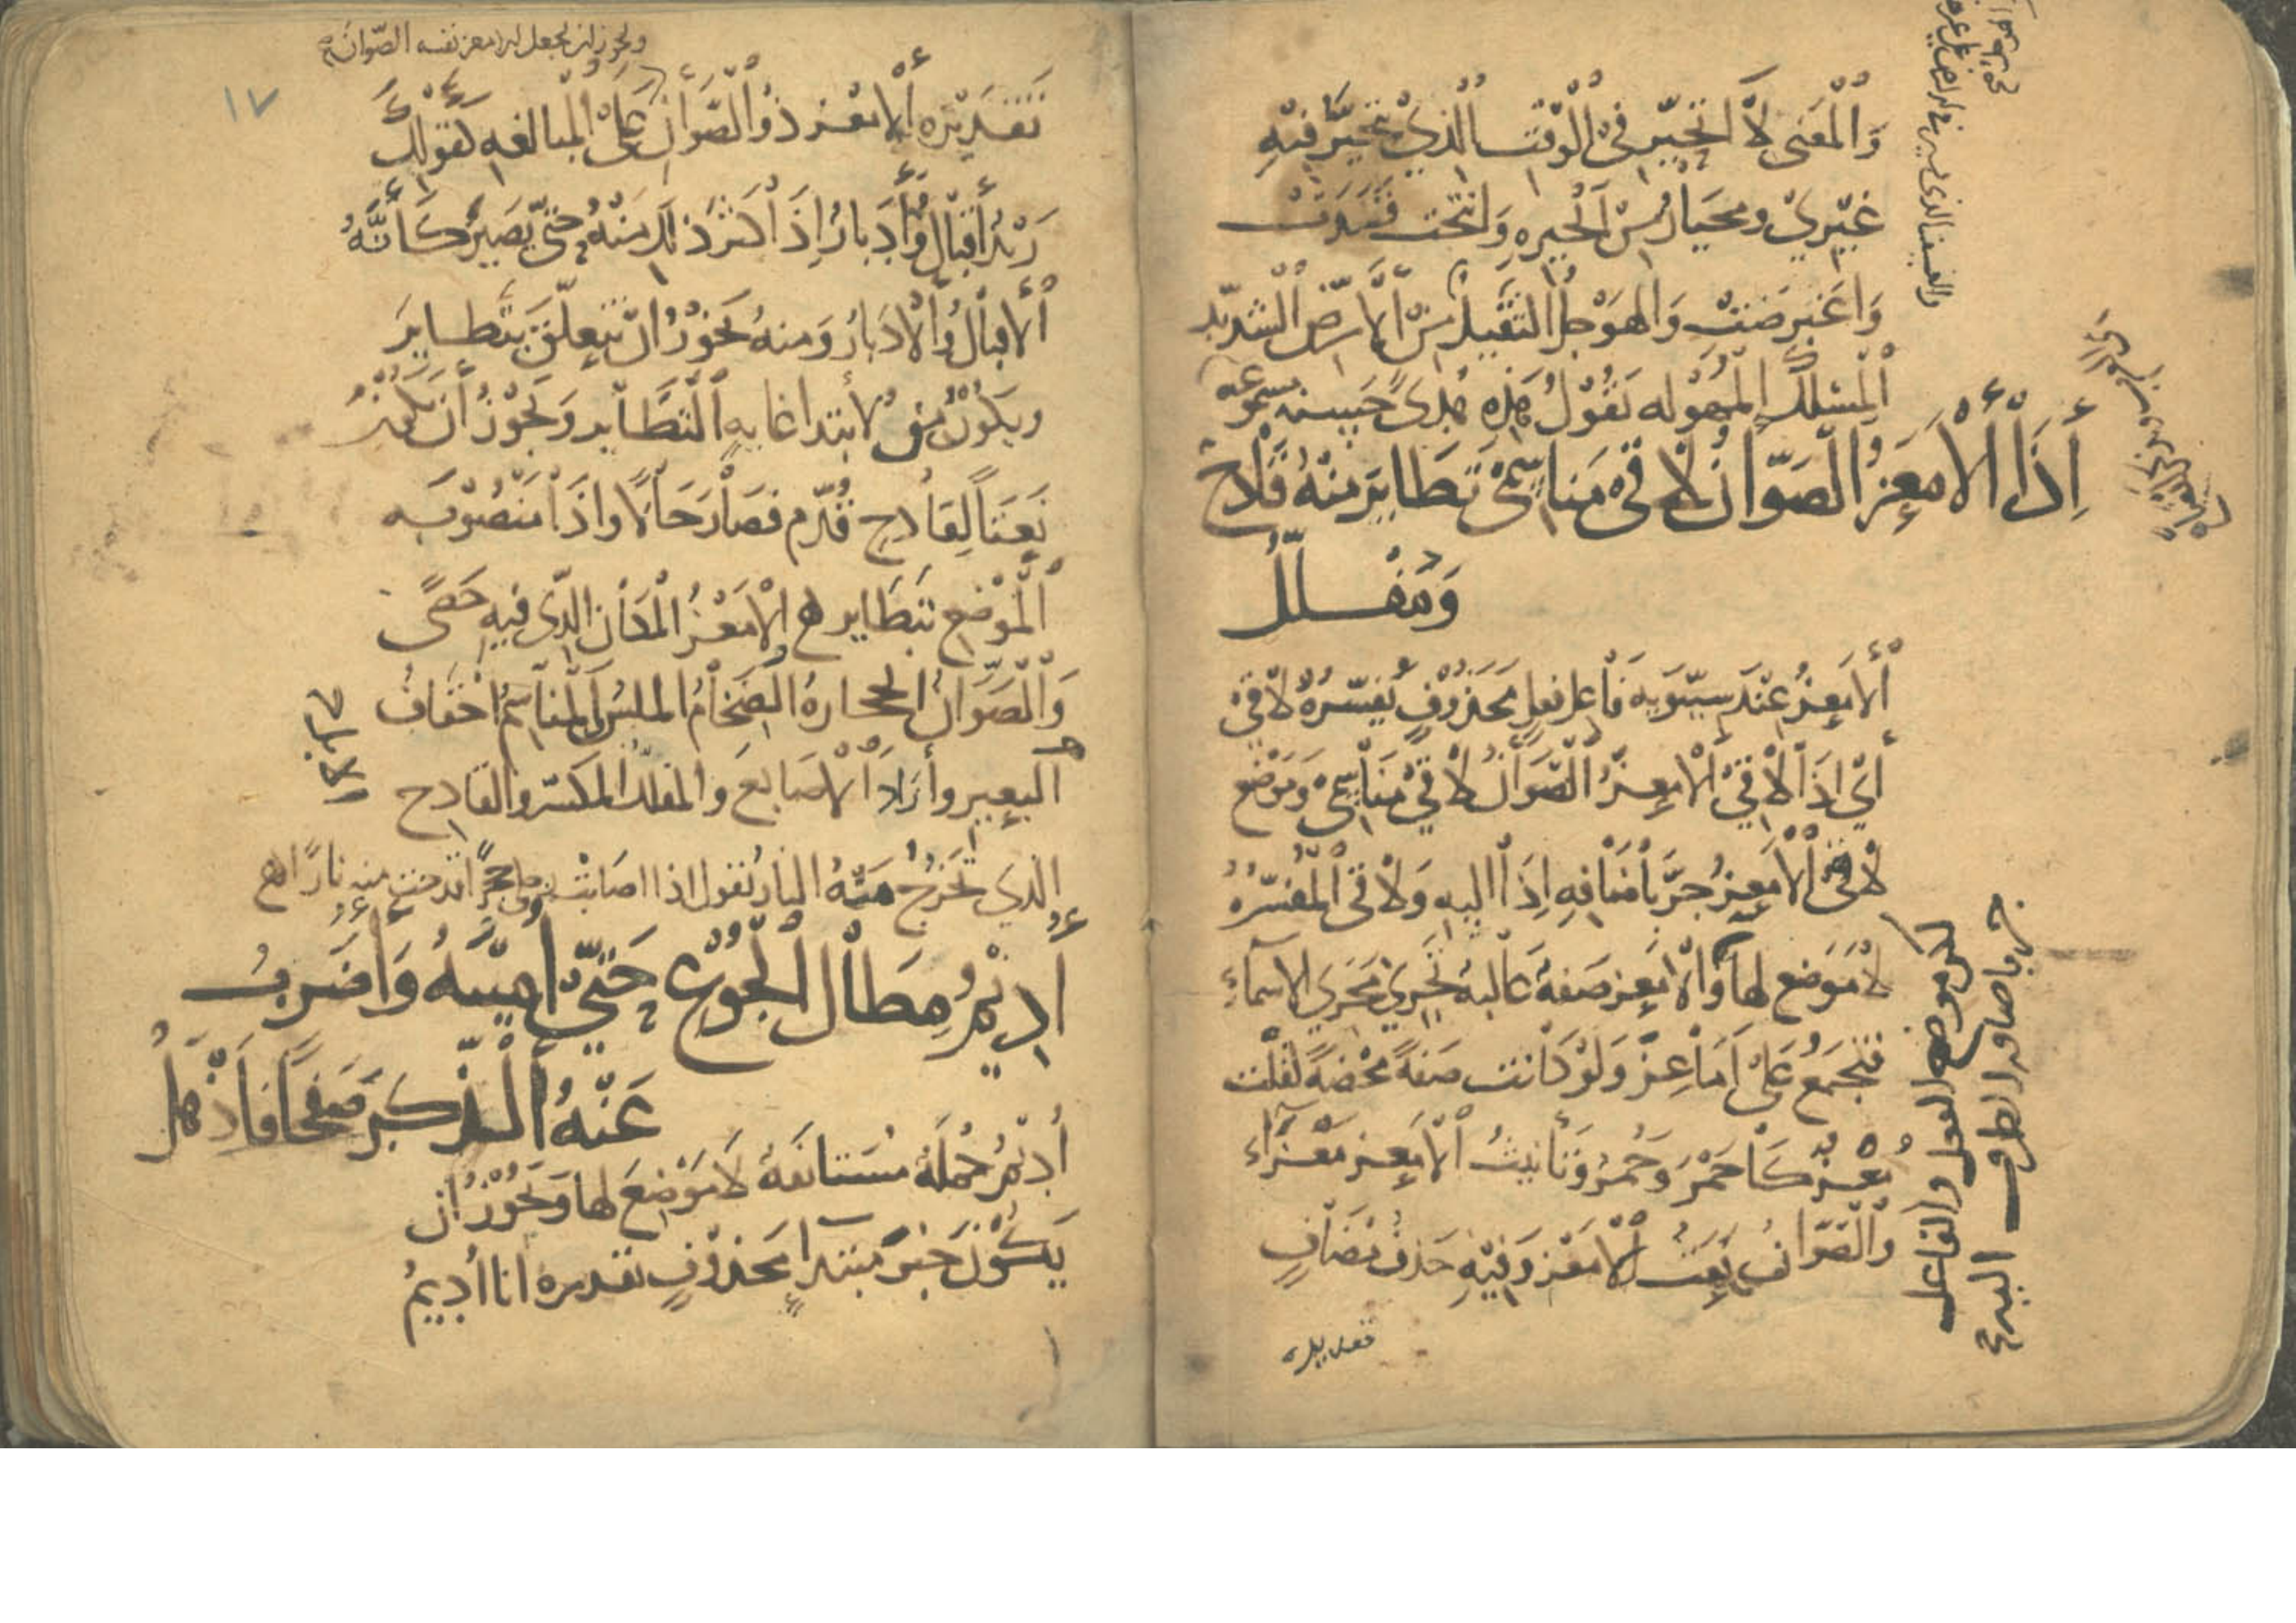 وَالْمَعْنى لَا اتحَيّر فِي الْوَقْت الذي يتحيّر فيْهِ
غيْري ومحيار مِنَ الْحيره وَانتحت قصدت
وَاعْتَرضَتْ وَالهَوْجَل الثقيل مِنَ الارض الشديد
المسلك المهوله تقول هذه هُدىً حسنه
إِذَا الْأَمْعَزُ الصَوّانُ لَاقى مَنَاسِمي تَطَايَرَ مِنْهُ قَادِحٌ
وَمُفَلّلُ
الامعز عنْدَ سيبويه فاعل فعل محذوف يفسّره لاقى
أي اذا لاقي الامعز الصوان لاقي مناسمي وموضع
لاقى الامعز جر باضافه اذا اليه ولاقى المفسره
لا موضع لها والامعز صفة غالبة تجري مجري الاسماء
فتجمع على اماعز ولو كانت صفة محضة لقلت
مُعْز كاحمر وحُمر وتأنيث الامعز معزاء
والصوان نعت الامعز وفيه حذف مضاف
تقديره
لكن موضع الفعل والفاعل
جر باضافه الظرف اليه صح
ويجوز ان يجعل الامعز نفسه الصوان
١٧
تقديره الامعز ذو الصوان على المبالغه كقولك
زيد اقبال وادبار اذا كثر ذلك منه حتى يصير كأنه
الاقبال والادبار ومنه يجوز ان تتعلق بتطاير
ويكون من لابتدا غايه التطاير ويجوز ان تكون
نعتاً لقادح قُدّم فصار حالا واذا منصوبه
الموضع بتطاير هـ الامعز المكان الذي فيه حصىً
والصوان الحجارة الضخام الملس المناسم اخفاف
البعير وأراد الاصابع والمفلل المكسر والقادح
الذي تخرج منه النار تقول اذا اصابت حجرا قدحت منه نارا هـ
أُدِيمُ مِطَالَ الْجُوْعِ حَتّى اميْتَهُ وَأَضْرِبُ
عَنْهُ الذّكرَ صَفْحًا فَأَذْهَلُ
أديم جملة مستانفة لا موضع لها ويجوز ان
يكون خبر مبتدا محذوف تقديره انا أديم